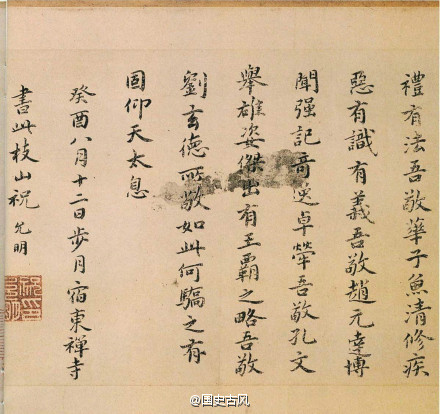 禮有法吾敬華子魚清修疾
惡有識有義吾敬趙元達博
聞强記奇逸卓犖吾敬孔文
舉雄姿傑出有王霸之略吾敬
劉玄德所敬如此何驕之有
因仰天太息
癸酉八月十二日步月宿東禪寺
書此枝山祝允明
@国史古风